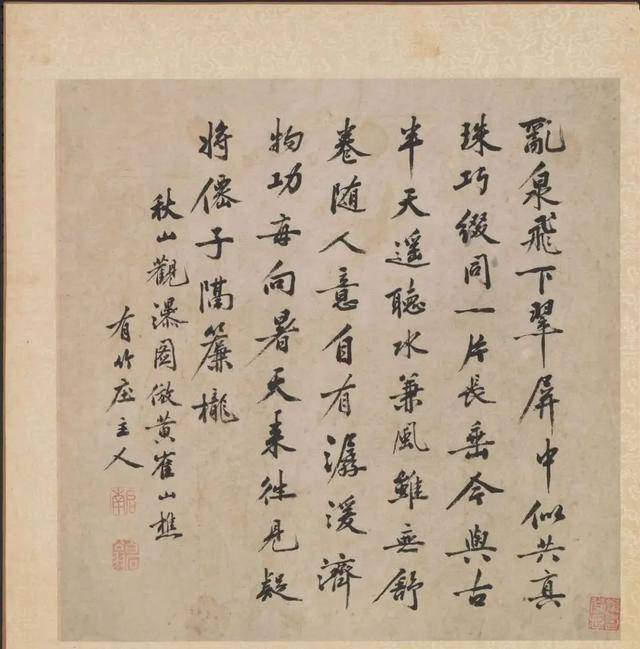 亂泉飛下翠屏中似共真
珠巧綴同一片長垂今與古
半天遥聽水兼風雖無舒
卷随人意自有潺湲濟
物功每向暑天来往見疑
将僊子隔簾櫳
秋山觀瀑圖倣黄崔山樵
有竹庄主人